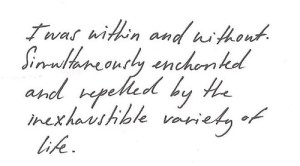 I was within and without.
Simultaneously enchanted
and repelled by the
inexhaustible variety of
life.